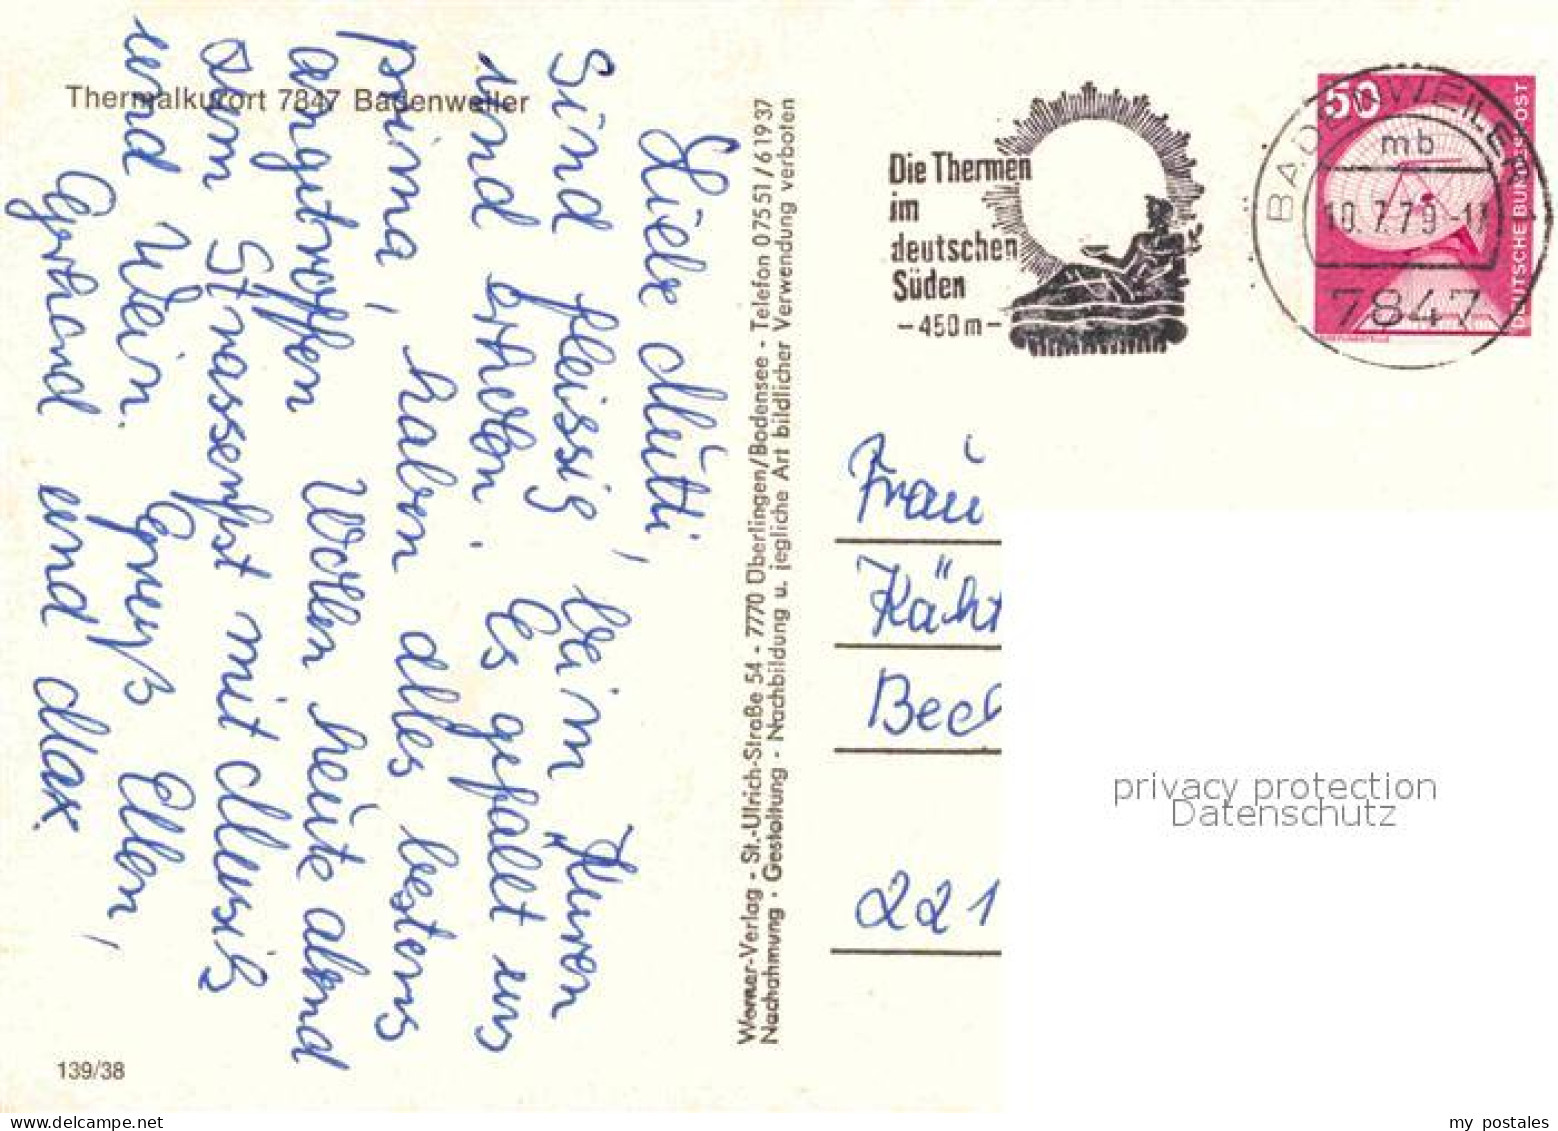 Thermalkurort 7847 Badenweiler
Liebe Mutti,
Sind fleissig beim „Kuren
und erholen. Es gefällt uns
prima, haben alles bestens
angetroffen. Wollen heute abend
zum Strassenfest mit Musik
und Wein. Gruß Ellen,
Gerhard und Max.
139/38
Werner-Verlag - St.-Ulrich-Straße 54 - 7770 Überlingen/Bodensee - Telefon 07551/61937
Nachahmung · Gestaltung - Nachbildung u. jegliche Art bildlicher Verwendung verboten
Die Thermen
im
deutschen
Süden
- 450 m -
50
DEUTSCHE BUNDESPOST
BADENWEILER 1
mb
10.7.79-11
7847
Frau
Käht
Bec
221
privacy protection
Datenschutz
my postales
delcampe.net